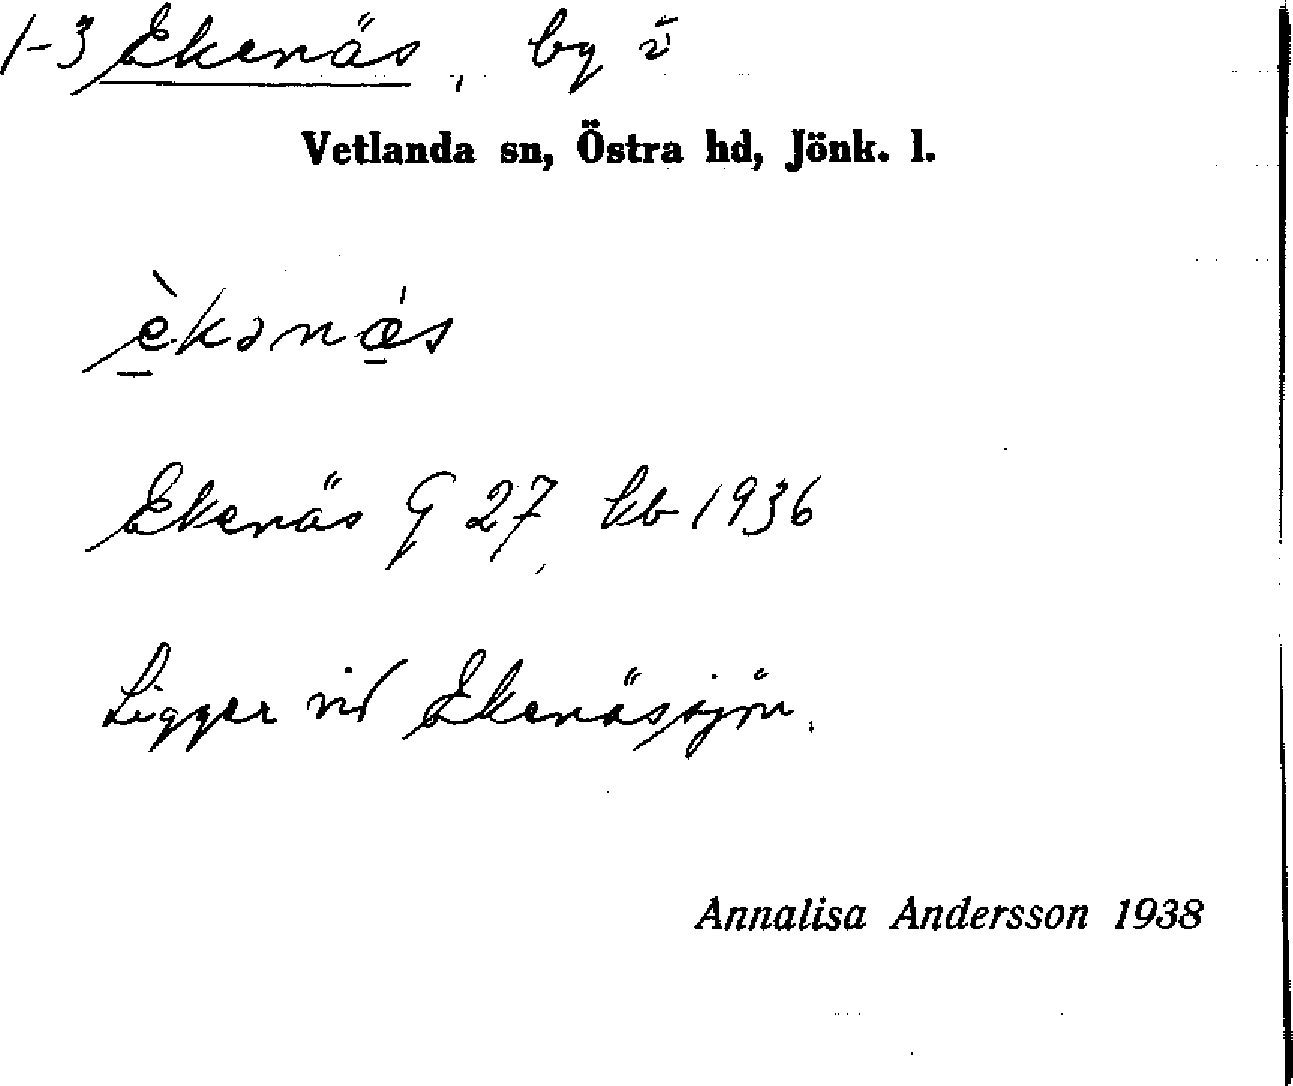 1-3 Ekenäs, by i
Vetlanda sn, Östra hd, Jönk. l.
èkənǽs
Ekenäs G 27, kb 1936
Ligger vid Ekenässjön.
Annalisa Andersson 1938